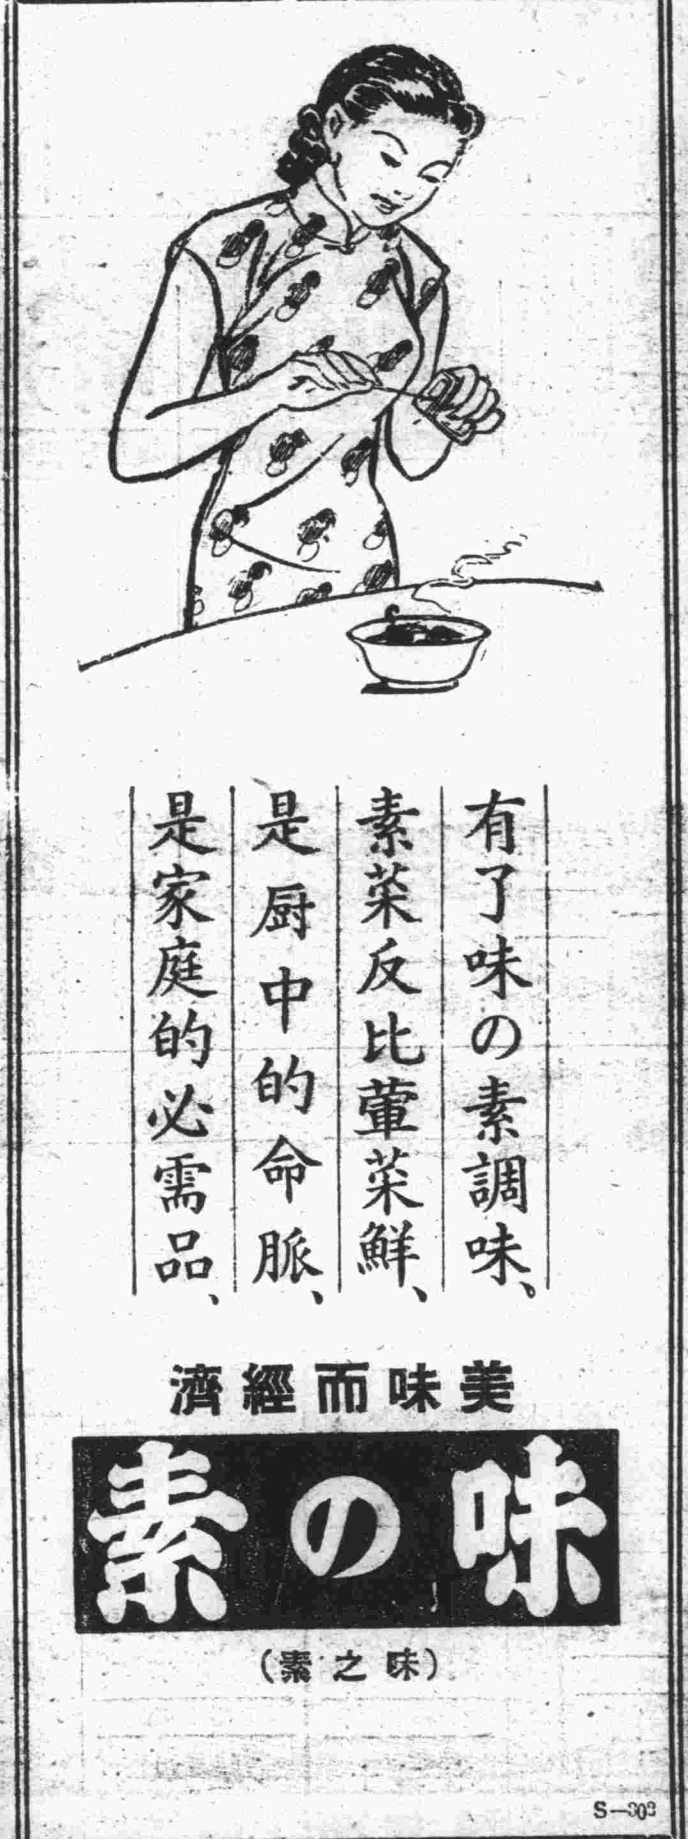 有了味の素調味、
素菜反比葷菜鮮、
是厨中的命脈、
是家庭的必需品、
美味而經濟
味の素
(味之素)